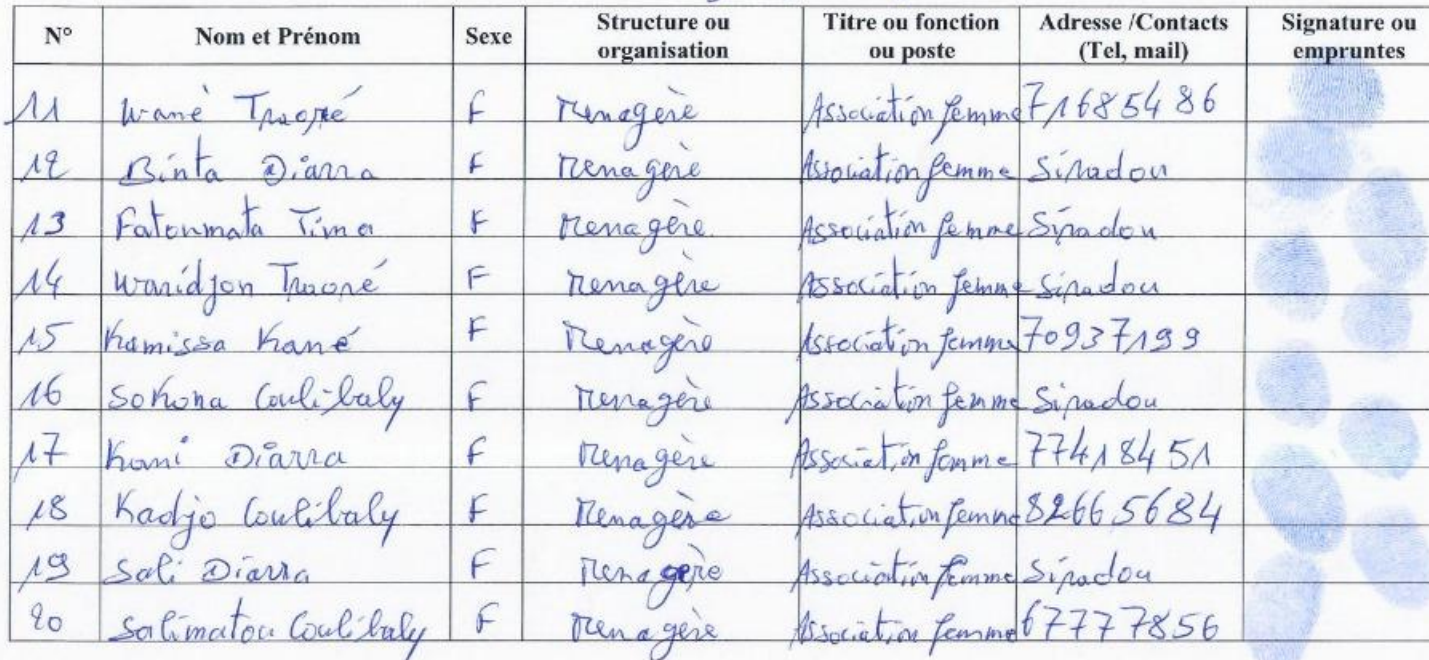 N° Nom et Prénom Sexe Structure ou organisation Titre ou fonction ou poste Adresse /Contacts (Tel, mail) Signature ou empruntes
11 Wanè Traoré F Menagère Association femme 71685486
12 Binta Diarra F Menagère Association femme Siradou
13 Fatoumata Tima F Menagère Association femme Siradou
14 Wanidjon Traoré F Menagère Association femme Siradou
15 Kamissa Kané F Menagère Association femme 70937199
16 Sokona Coulibaly F Menagère Association femme Siradou
17 Kani Diarra F Menagère Association femme 77418451
18 Kadjo Coulibaly F Menagère Association femme 82665684
19 Sali Diarra F Menagère Association femme Siradou
20 Salimatou Coulibaly F Menagère Association femme 67777856